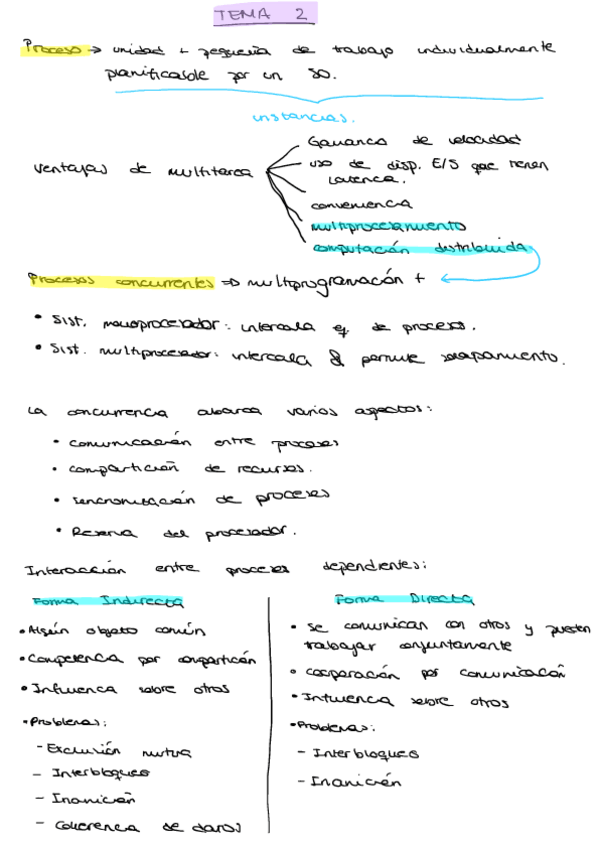 TEMA 2
Proceso → unidad + pequeña de trabajo individualmente
planificable por un SO.
instancias.
Ventajas de multitarea
Ganancia de velocidad
uso de disp. E/S que tienen
latencia.
conveniencia
multiprocesamiento
computación distribuida
Procesos concurrentes ⇒ multiprogramación +
• Sist. monoprocesador: intercala ej. de procesos.
• Sist. multiprocesador: intercala & permite solapamiento.
La concurrencia abarca varios aspectos:
• comunicación entre procesos
• compartición de recursos.
• sincronización de procesos
• Reserva del procesador.
Interacción entre procesos dependientes:
Forma Indirecta
• Algún objeto común
• Competencia por compartición
• Influencia sobre otros
• Problemas:
- Exclusión mutua
- Interbloqueo
- Inanición
- Coherencia de datos
Forma Directa
• Se comunican con otros y pueden
trabajar conjuntamente
• cooperación por comunicación
• Influencia sobre otros
• Problemas:
- Interbloqueo
- Inanición